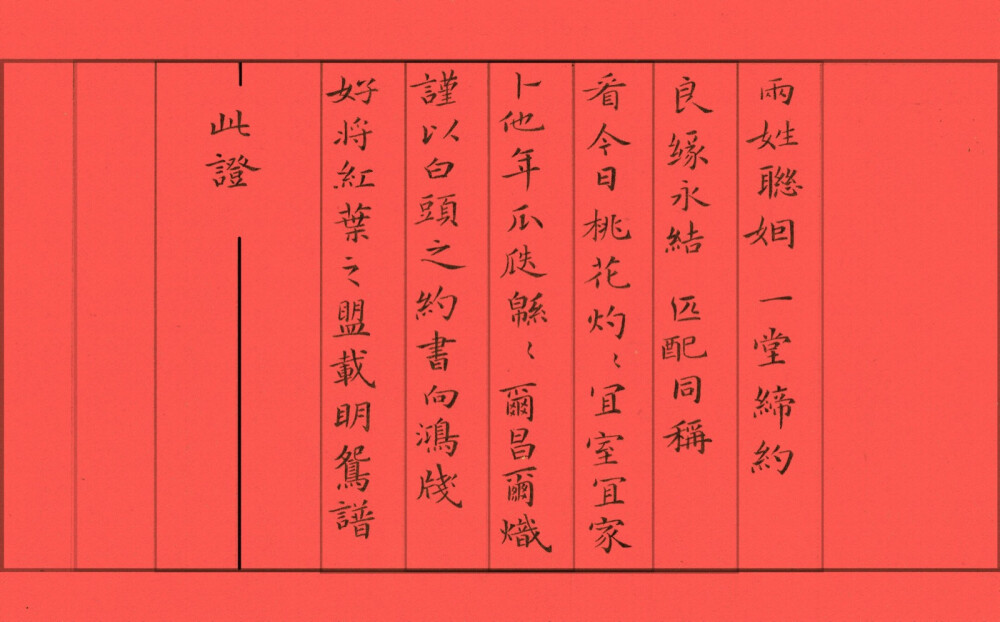 兩姓聯姻 一堂締約
良緣永結 匹配同稱
看今日桃花灼〻宜室宜家
卜他年瓜瓞緜〻爾昌爾熾
謹以白頭之約書向鴻牋
好將紅葉之盟載明鴛譜
此證